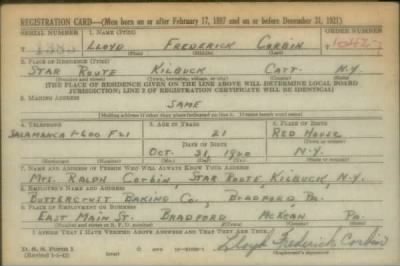 REGISTRATION CARD—(Men born on or after February 17, 1897 and on or before December 31, 1921)
SERIAL NUMBER 1. NAME (Print) ORDER NUMBER
T 1385 LLOYD FREDERICK CORBIN
(First) (Middle) (Last)
2. PLACE OF RESIDENCE (Print)
STAR ROUTE KILBUCK CATT. N.Y.
(Number and street) (Town, township, village, or city) (County) (State)
[THE PLACE OF RESIDENCE GIVEN ON THE LINE ABOVE WILL DETERMINE LOCAL BOARD
JURISDICTION; LINE 2 OF REGISTRATION CERTIFICATE WILL BE IDENTICAL]
3. MAILING ADDRESS
SAME
[Mailing address if other than place indicated on line 2. If same insert word same]
4. TELEPHONE 5. AGE IN YEARS 6. PLACE OF BIRTH
SALAMANCA 1-600 F21 21 RED HOUSE
DATE OF BIRTH
OCT. 31, 1920 N.Y.
(Exchange) (Number) (Mo.) (Day) (Yr.) (State or country)
7. NAME AND ADDRESS OF PERSON WHO WILL ALWAYS KNOW YOUR ADDRESS
MRS. RALPH CORBIN, STAR ROUTE, KILBUCK, N.Y.
8. EMPLOYER'S NAME AND ADDRESS
BUTTERCRUST BAKING CO., BRADFORD, PA.
9. PLACE OF EMPLOYMENT OR BUSINESS
EAST MAIN ST. BRADFORD MCKEAN PA.
(Number and street or R. F. D. number) (Town) (County) (State)
I AFFIRM THAT I HAVE VERIFIED ABOVE ANSWERS AND THAT THEY ARE TRUE.
D. S. S. Form 1 Lloyd Frederick Corbin
(Registrant's signature)